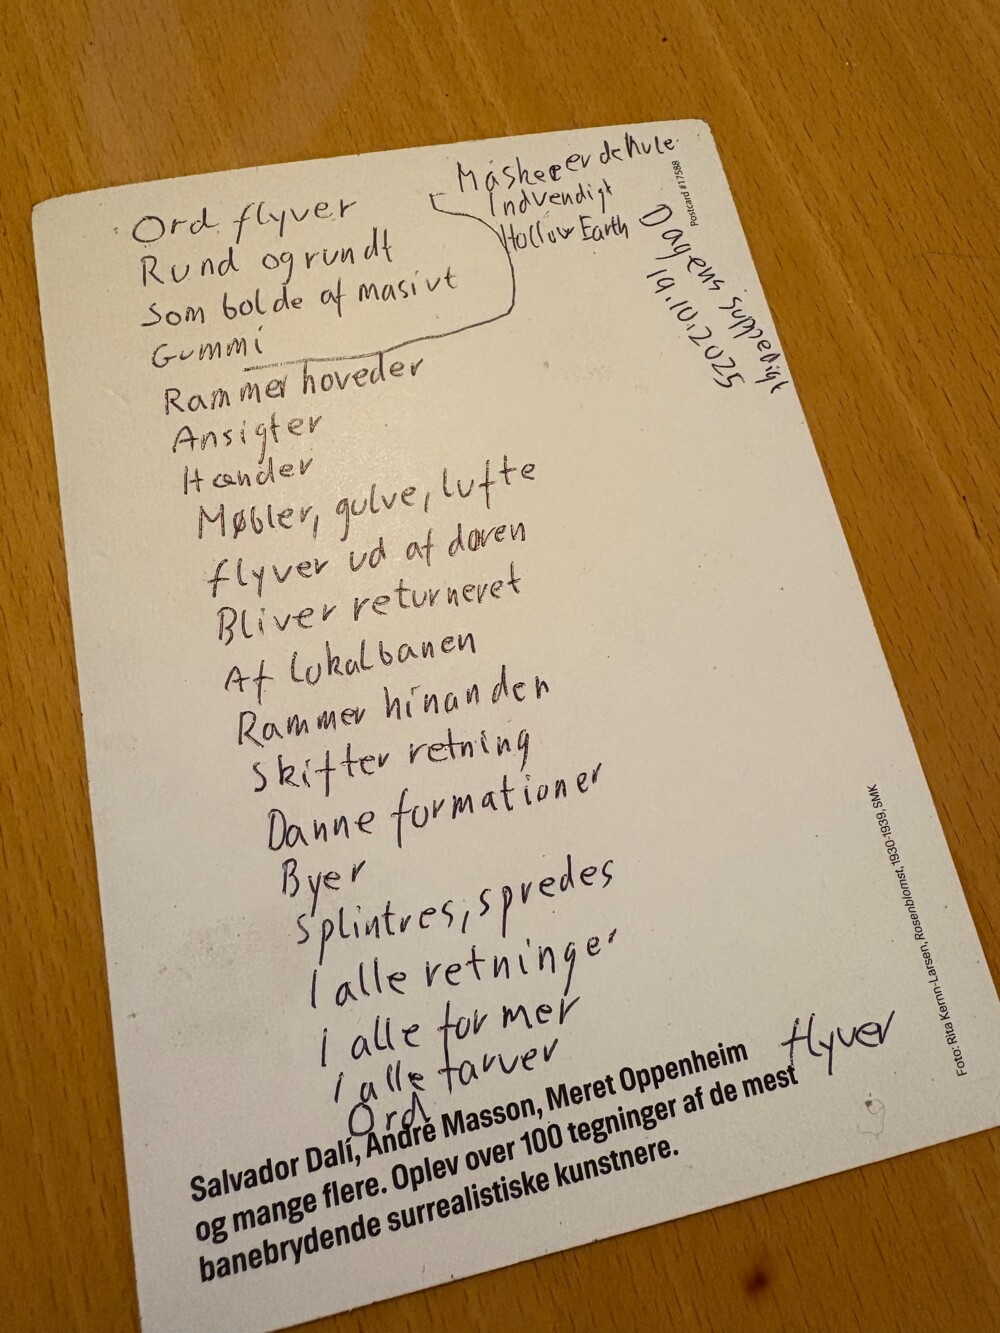 Ord flyver
Rund og rundt
Som bolde af masivt
Gummi
Måskee er de hule
Indvendigt
Hollow Earth
Rammer hoveder
Ansigter
Hænder
Møbler, gulve, lufte
flyver ud af døren
Bliver returneret
Af lokalbanen
Rammer hinanden
Skifter retning
Danne formationer
Byer
Splintres, spredes
I alle retninger
I alle former
I alle farver
Ord
flyver
Dagens suppedigt
19.10.2025
Postcard #17588
Foto: Rita Kernn-Larsen, Rosenblomst, 1930-1939, SMK
Salvador Dalí, André Masson, Meret Oppenheim
og mange flere. Oplev over 100 tegninger af de mest
banebrydende surrealistiske kunstnere.